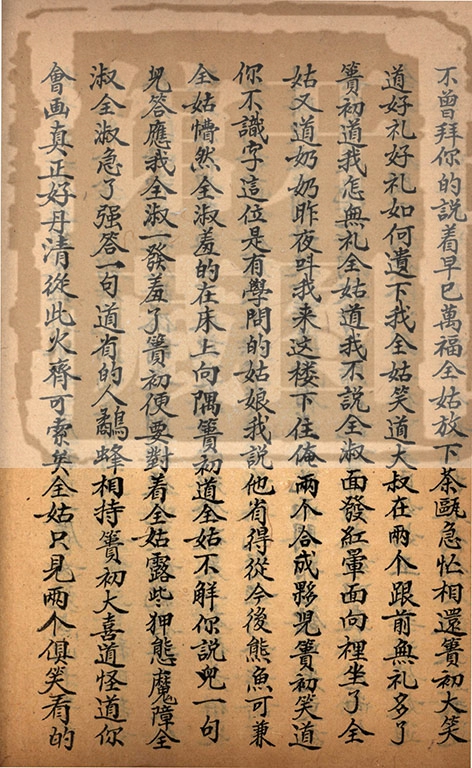 不曾拜你的説着早已萬福全姑放下茶甌急忙相還簣初大笑
道好礼好礼如何遺下我全姑笑道大叔在兩个跟前無礼多了
簣初道我怎無礼全姑道我不説全淑面發紅暈面向裡坐了全
姑又道奶奶昨夜叫我来这楼下住俺兩个合成夥児簣初笑道
你不識字這位是有學問的姑娘我説他省得從今後熊魚可兼
全姑懵然全淑羞的在床上向隅簣初道全姑不觧你説兒一句
兒答應我全淑一發羞了簣初便要對着全姑露些狎態魔障全
淑全淑急了强答一句道省的人鷸蜂相持簣初大喜道怪道你
會画真正好丹清從此火齊可索矣全姑只見兩个俱笑看的